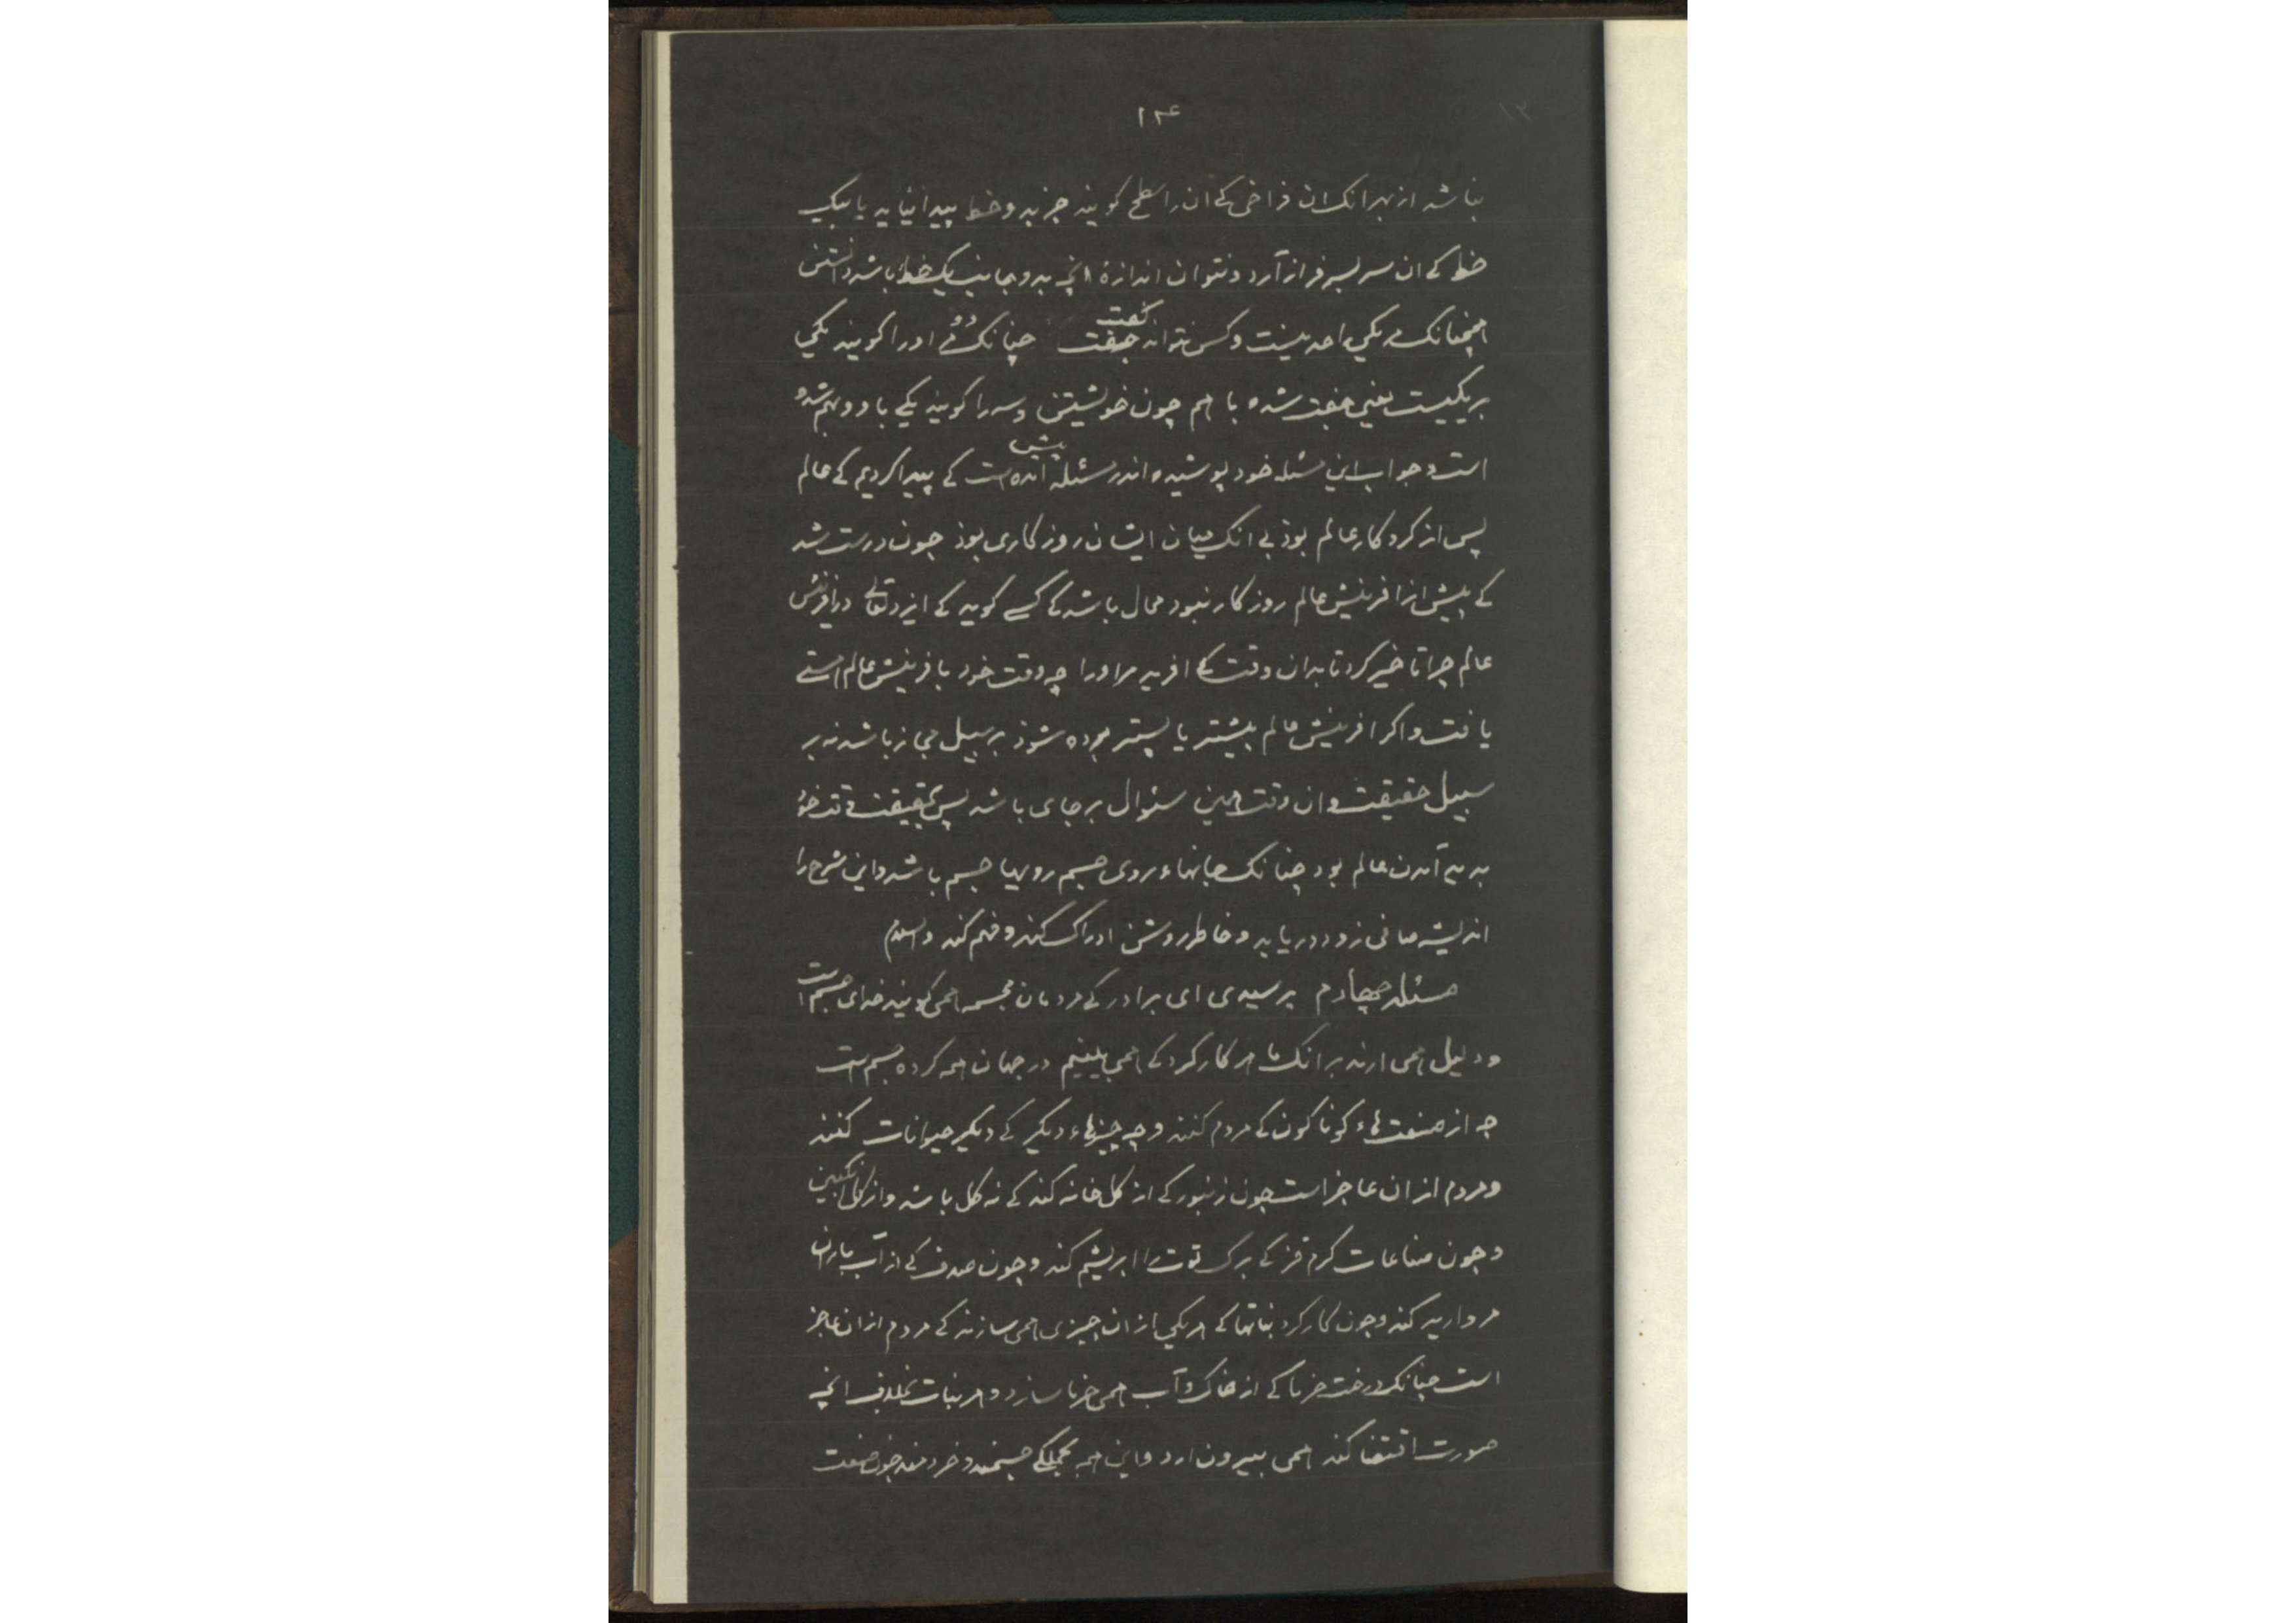 ۱۲۴
نباشد از بهر آنک ان فراخی کے ان را سطح کویند جز بد و خط پیدا نیاید یا بیک
خط کے ان سر بسر فراز آرد و نتوان اندازۀ انچه بدو جانب یک خط باشد دانستن
همچنانک مر یکی را حد نیست و کس نتواند جفت گفت چنانک دو مر او را کویند یکی
بر یکیست یعنی جفت شده با هم چون خویشتن و سه را کویند یکے با دو بهم شده
است و جواب این مسئله خود پوشیده اندر مسئله پیشین آمده است کے پیدا کردیم کے عالم
پس از کردکار عالم بوذ بے انک میان ایشان روزکاری بوذ چون درست شد
کے پیش از افرینش عالم روزکار نبود محال باشد کے کسے کوید کے ایزد تعالے در افرینش
عالم چرا تاخیر کرد تا بدان وقت کے افرید مر او را چه وقت خود بافرینش عالم هستے
یافت و اکر افرینش عالم پیشتر یا پستر بوده شوذ بر سبیل مجاز باشد نه بر
سبیل حقیقت و ان وقت همین سئوال بر جای باشد پس بحقیقت وقت خود
پدید آمدن عالم بود چنانک جانها روی جسم رویها جسم باشد و این شرح را
اندیشه صافی زود دریابد و خاطر روشن ادراک کند و فهم کند والسلم
مسئله چهارم پرسیدی ای برادر کے مردمان مجسمه همی کویند خدای جسم است
و دلیل همی ارند برانک ما هر کارکرد کے همی بینیم در جهان همه کرده جسم است
چه از صنعت هاء کوناکون کے مردم کنند و چه چیزهاء دیکر کے دیکر حیوانات کنند
و مردم از ان عاجز است چون زنبور کے از کل خانه کند کے نه کل باشد و از کل انکبین
و چون صناعات کرم قز کے برک توت را ابریشم کند و چون صدف کے از آب باران
مروارید کند و چون کارکرد نباتها کے هر یکی از ان چیزی همی سازند کے مردم از ان عاجز
است چنانک درخت خرما کے از خاک و آب همی خرما سازد و هر نبات بخلاف انچه
صورت اقتضا کند همی بیرون ارد و این همه بجملکے جسمند و خردمند چون صنعت